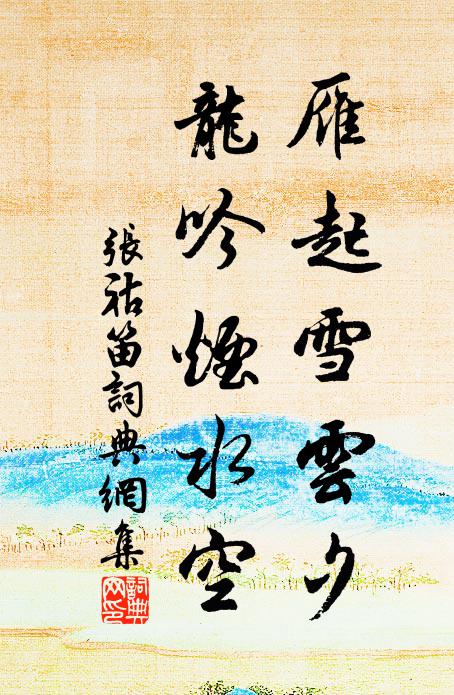 雁起雪雲夕
龍吟煙水空
張祜笛詞典網集
詞典